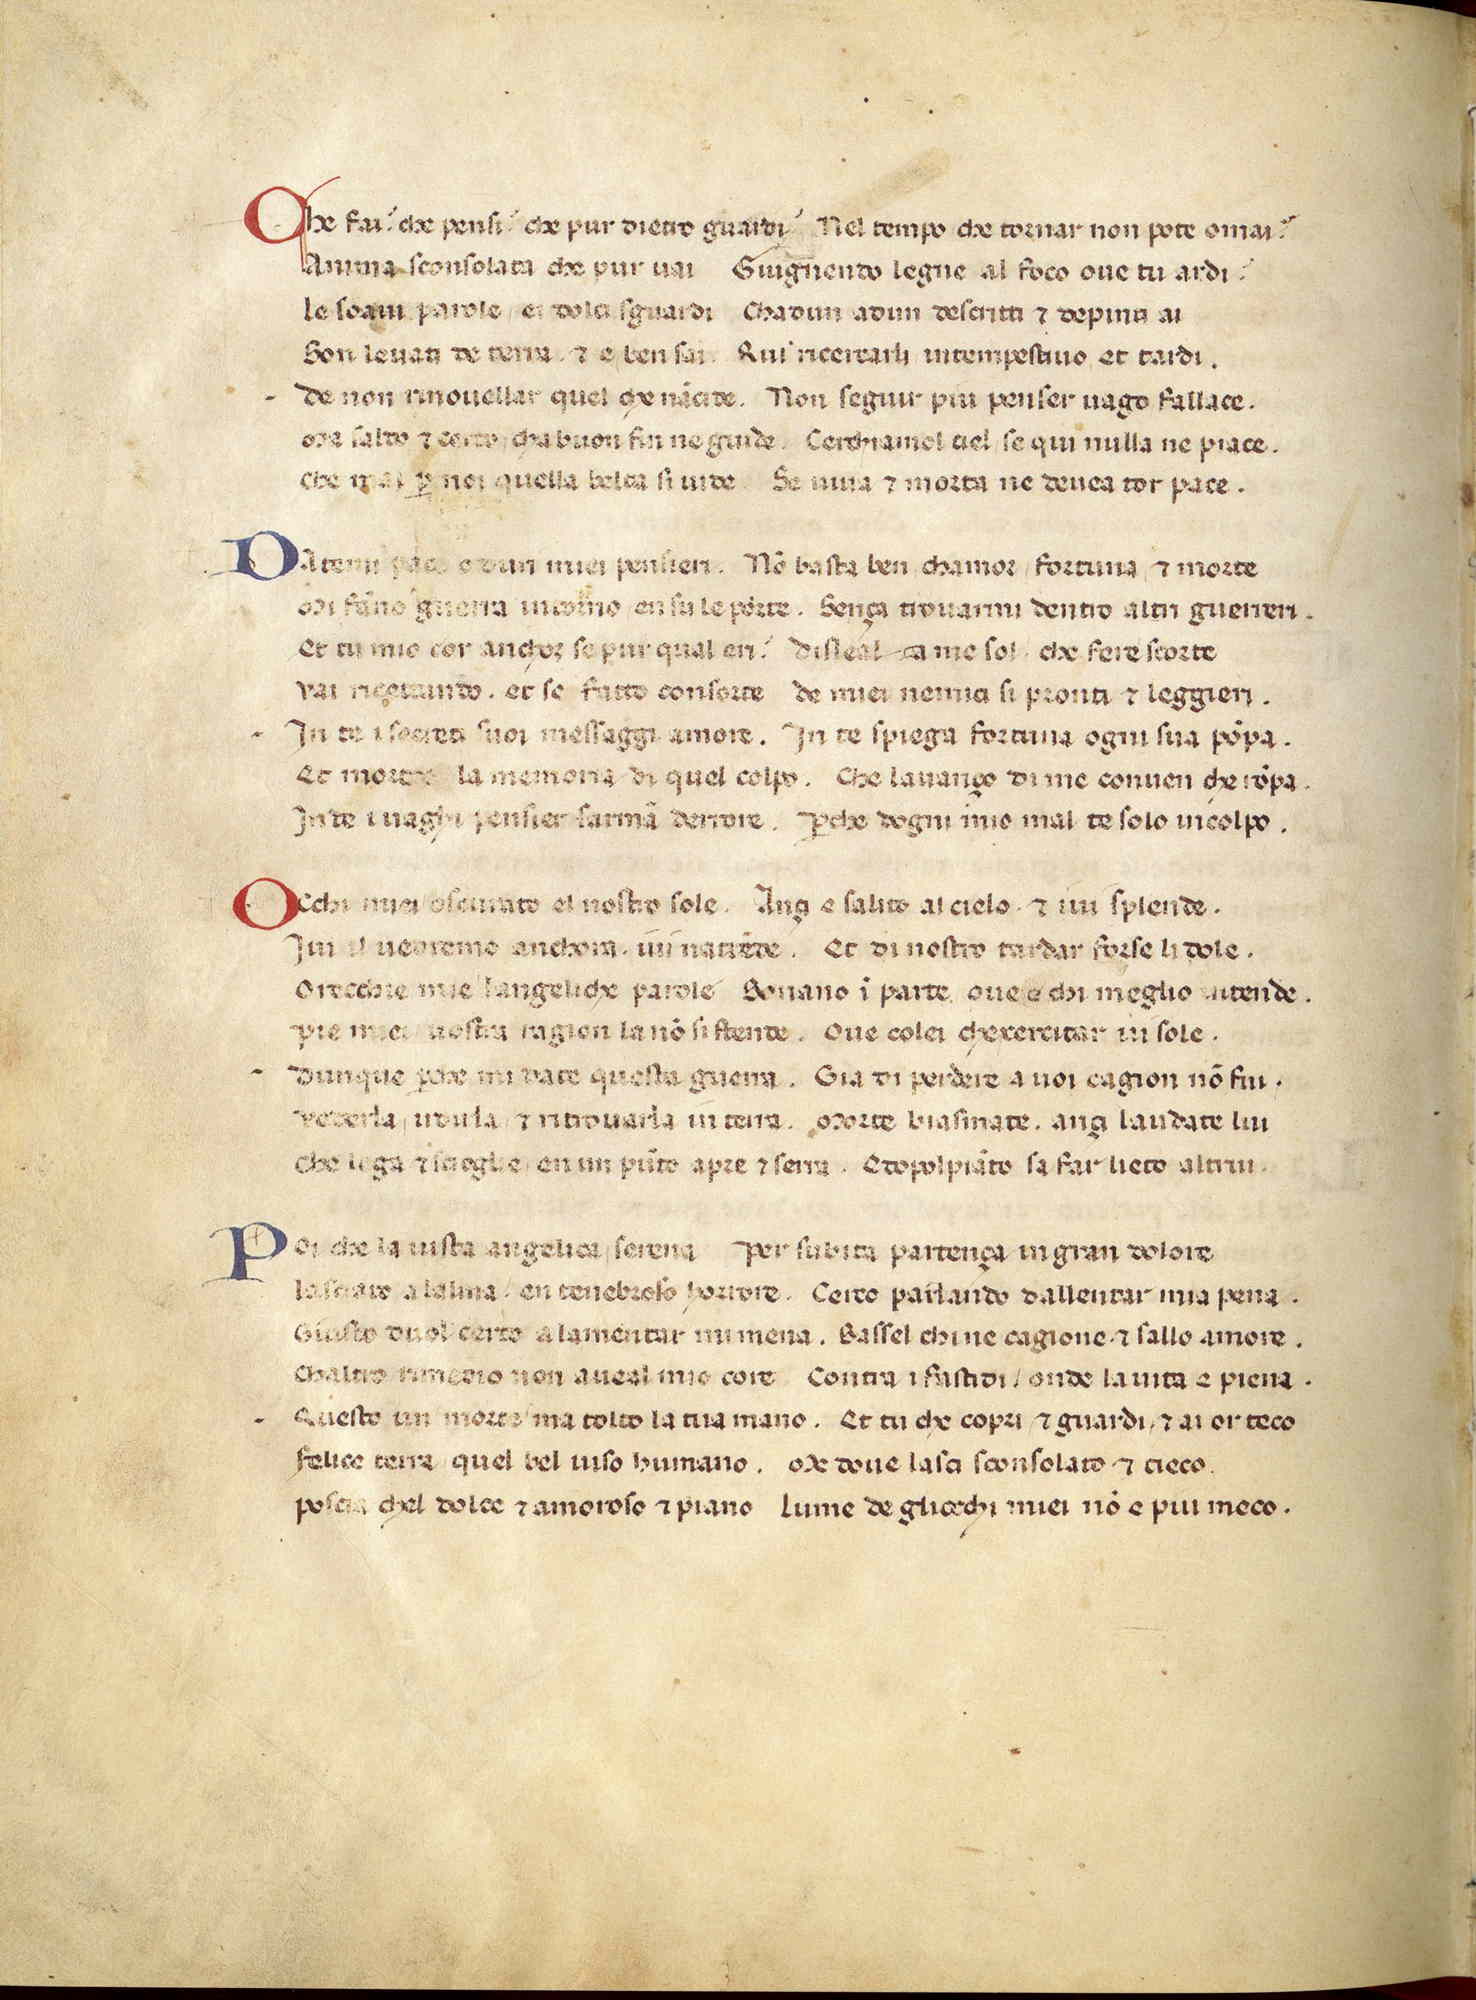 Che fai? che pensi? che pur dietro guardi? Nel tempo che tornar non pote omai?
Anima sconsolata che pur vai Giugnendo legne al foco oue tu ardi?
le soaui parole / ei dolci sguardi Chadun adun descritti ⁊ depinti ai
Son leuati de terra . ⁊ e ben sai Qui ricercarli intempestiuo et tardi .
De non rinouellar quel che nãcide . Non seguir piu penser uago fallace .
Ma saldo ⁊ certo / cha buon fin ne guide . Cerchiamel ciel / se qui nulla ne piace .
Che mal ꝑ noi quella belta si uide Se uiua ⁊ morta ne deuea tor pace .
DAtemi pace o duri miei pensieri . Nõ basta ben / chamor / fortuna / ⁊ morte
Mi fãno guerra intorno / en su le porte . Sença trouarmi dentro altri guerreri .
Et tu mio cor anchor se pur qual eri? disleal a me sol / che fere scorte
vai ricettando . et se fatto consorte de miei nemici si pronti ⁊ leggieri .
In te i secreti suoi messaggi amore . In te spiega fortuna ogni sua põpa .
Et morte la memoria di quel colpo . Che lauanço di me conuen che rõpa .
In te i uaghi pensier sarmã derrore . ꝑche dogni mio mal te solo incolpo .
OCchi miei / oscurato el nostro sole . Anç e salito al cielo . ⁊ iui splende .
Iui il uedremo anchora . iui natẽde . Et di nostro tardar forse li dole .
Orecchie mie langeliche parole Sonano ĩ parte oue e chi meglio intende .
pie miei / uostra ragion la nõ si stende . Oue colei chexercitar ui sole .
Dunque ꝑche mi date questa guerra . Gia di perdere a uoi cagion nõ fui .
Vederla / udirla / ⁊ ritrouarla in terra . Morte biasimate . anç laudate lui
Che lega ⁊ scioglie / en un pũto apre ⁊ serra . Edopolpiãto sa far lieto altrui .
POi che la uista angelica / serena Per subita partença in gran dolore
lasciato a lalma / en tenebroso horrore . Cerco parlando dallentar mia pena .
Giusto duol certo a lamentar mi mena . Sassel chi ne cagione ⁊ sallo amore .
Chaltro rimedio non aueal mio core Contra i fastidi / onde la uita e piena .
Questo un morte ma tolto la tua mano . Et tu che copri / ⁊ guardi / ⁊ ai or teco
felice terra / quel bel uiso humano . Me doue lasci sconsolato ⁊ cieco .
poscia chel dolce ⁊ amoroso ⁊ piano lume de gliocchi miei nõ e piu meco .